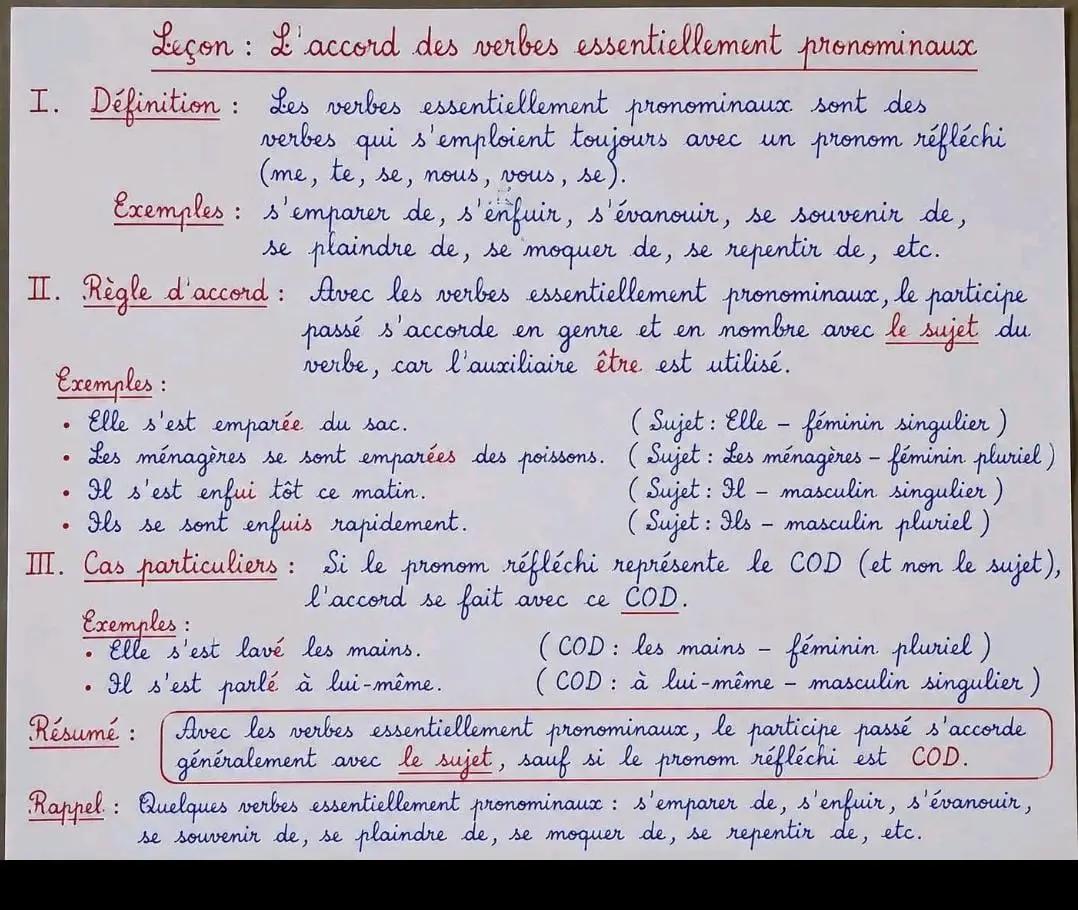 Leçon : L'accord des verbes essentiellement pronominaux
I. Définition : Les verbes essentiellement pronominaux sont des
verbes qui s'emploient toujours avec un pronom réfléchi
(me, te, se, nous, vous, se).
Exemples : s'emparer de, s'enfuir, s'évanouir, se souvenir de,
se plaindre de, se moquer de, se repentir de, etc.
II. Règle d'accord : Avec les verbes essentiellement pronominaux, le participe
passé s'accorde en genre et en nombre avec le sujet du
verbe, car l'auxiliaire être est utilisé.
Exemples :
• Elle s'est emparée du sac. (Sujet : Elle – féminin singulier)
• Les ménagères se sont emparées des poissons. (Sujet : Les ménagères – féminin pluriel)
• Il s'est enfui tôt ce matin. (Sujet : Il – masculin singulier)
• Ils se sont enfuis rapidement. (Sujet : Ils – masculin pluriel)
III. Cas particuliers : Si le pronom réfléchi représente le COD (et non le sujet),
l'accord se fait avec ce COD.
Exemples :
• Elle s'est lavé les mains. (COD : les mains – féminin pluriel)
• Il s'est parlé à lui-même. (COD : à lui-même – masculin singulier)
Résumé : Avec les verbes essentiellement pronominaux, le participe passé s'accorde
généralement avec le sujet, sauf si le pronom réfléchi est COD.
Rappel : Quelques verbes essentiellement pronominaux : s'emparer de, s'enfuir, s'évanouir,
se souvenir de, se plaindre de, se moquer de, se repentir de, etc.